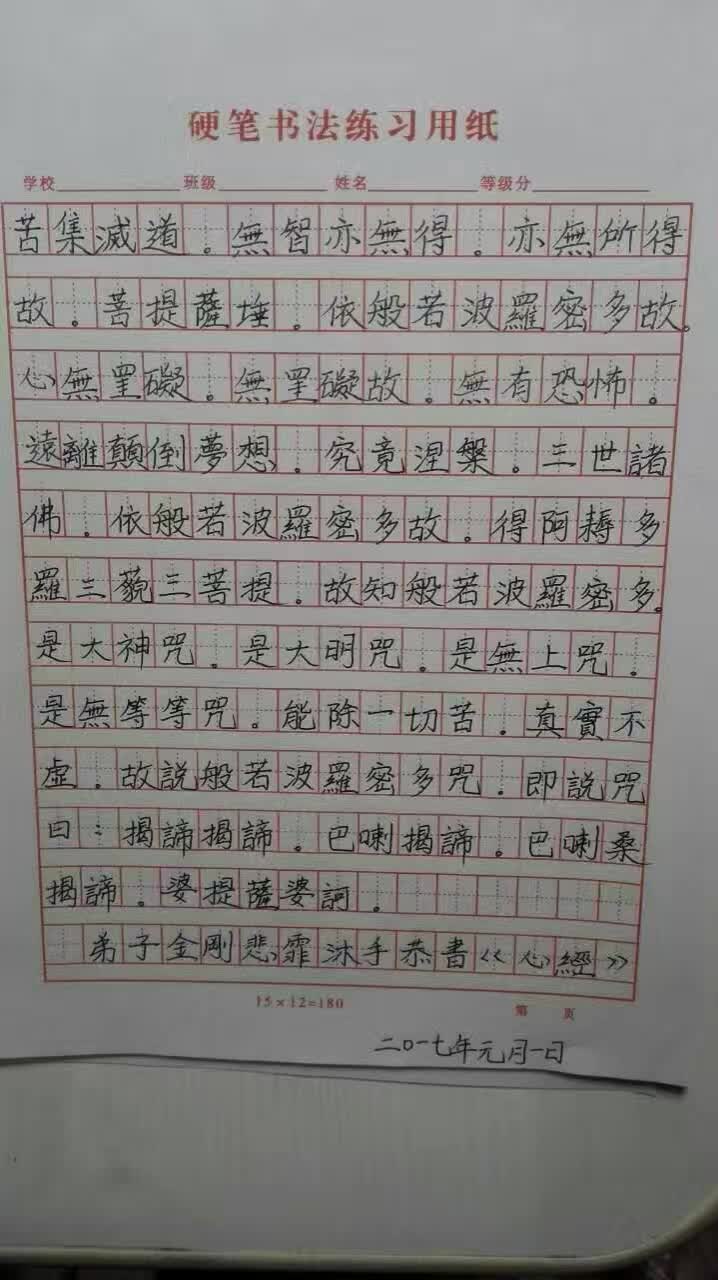 硬笔书法练习用纸
学校 班级 姓名 等级分
苦集滅道。無智亦無得。亦無所得
故。菩提薩埵。依般若波羅密多故。
心無罣礙。無罣礙故。無有恐怖。
遠離顛倒夢想。究竟涅槃。三世諸
佛。依般若波羅密多故。得阿耨多
羅三藐三菩提。故知般若波羅密多。
是大神咒。是大明咒。是無上咒。
是無等等咒。能除一切苦。真實不
虛。故說般若波羅密多咒。即說咒
曰：揭諦揭諦。巴喇揭諦。巴喇桑
揭諦。婆提薩婆訶。
弟子金剛悲霏沐手恭書《心經》
15×12=180
第 页
二〇一七年元月一日